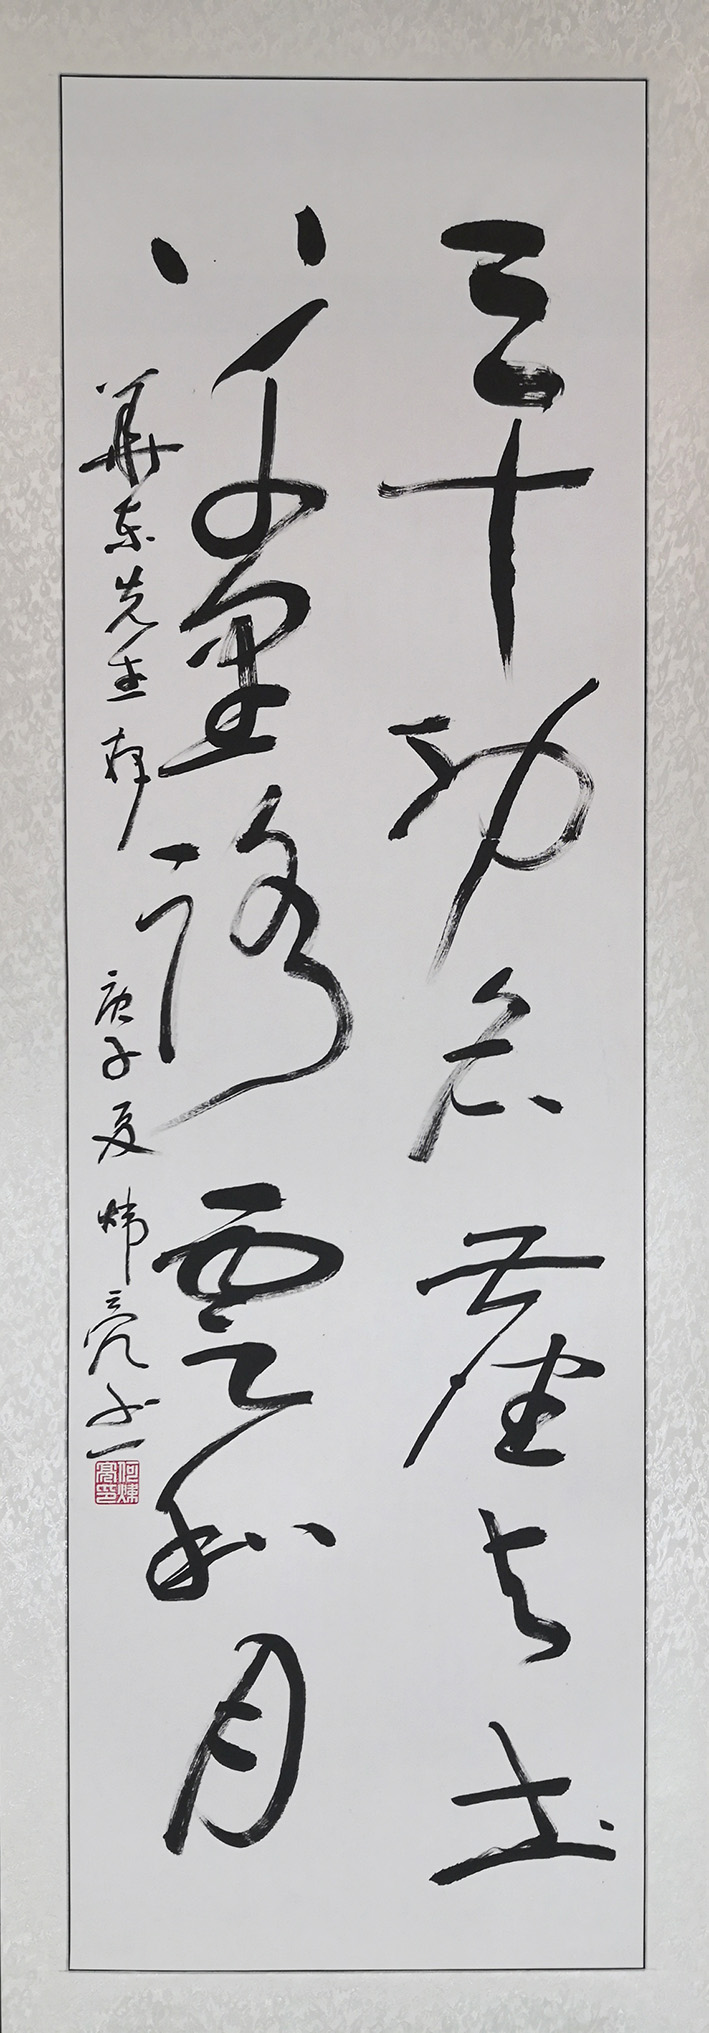 三十功名尘与土
八千里路云和月
华东先生存 庚子夏 炜亮书
何炜亮印